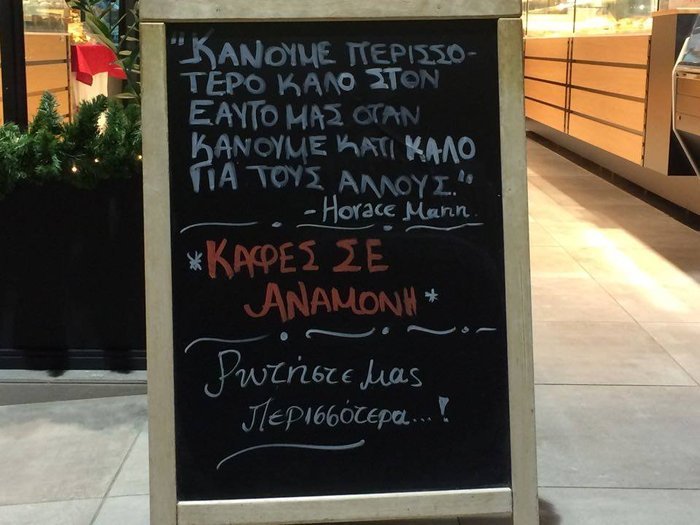 "ΚΑΝΟΥΜΕ ΠΕΡΙΣΣΟ-
ΤΕΡΟ ΚΑΛΟ ΣΤΟΝ
ΕΑΥΤΟ ΜΑΣ ΟΤΑΝ
ΚΑΝΟΥΜΕ ΚΑΤΙ ΚΑΛΟ
ΓΙΑ ΤΟΥΣ ΑΛΛΟΥΣ."
- Horace Mann.
*ΚΑΦΕΣ ΣΕ
ΑΝΑΜΟΝΗ*
Ρωτήστε μας
περισσότερα...!